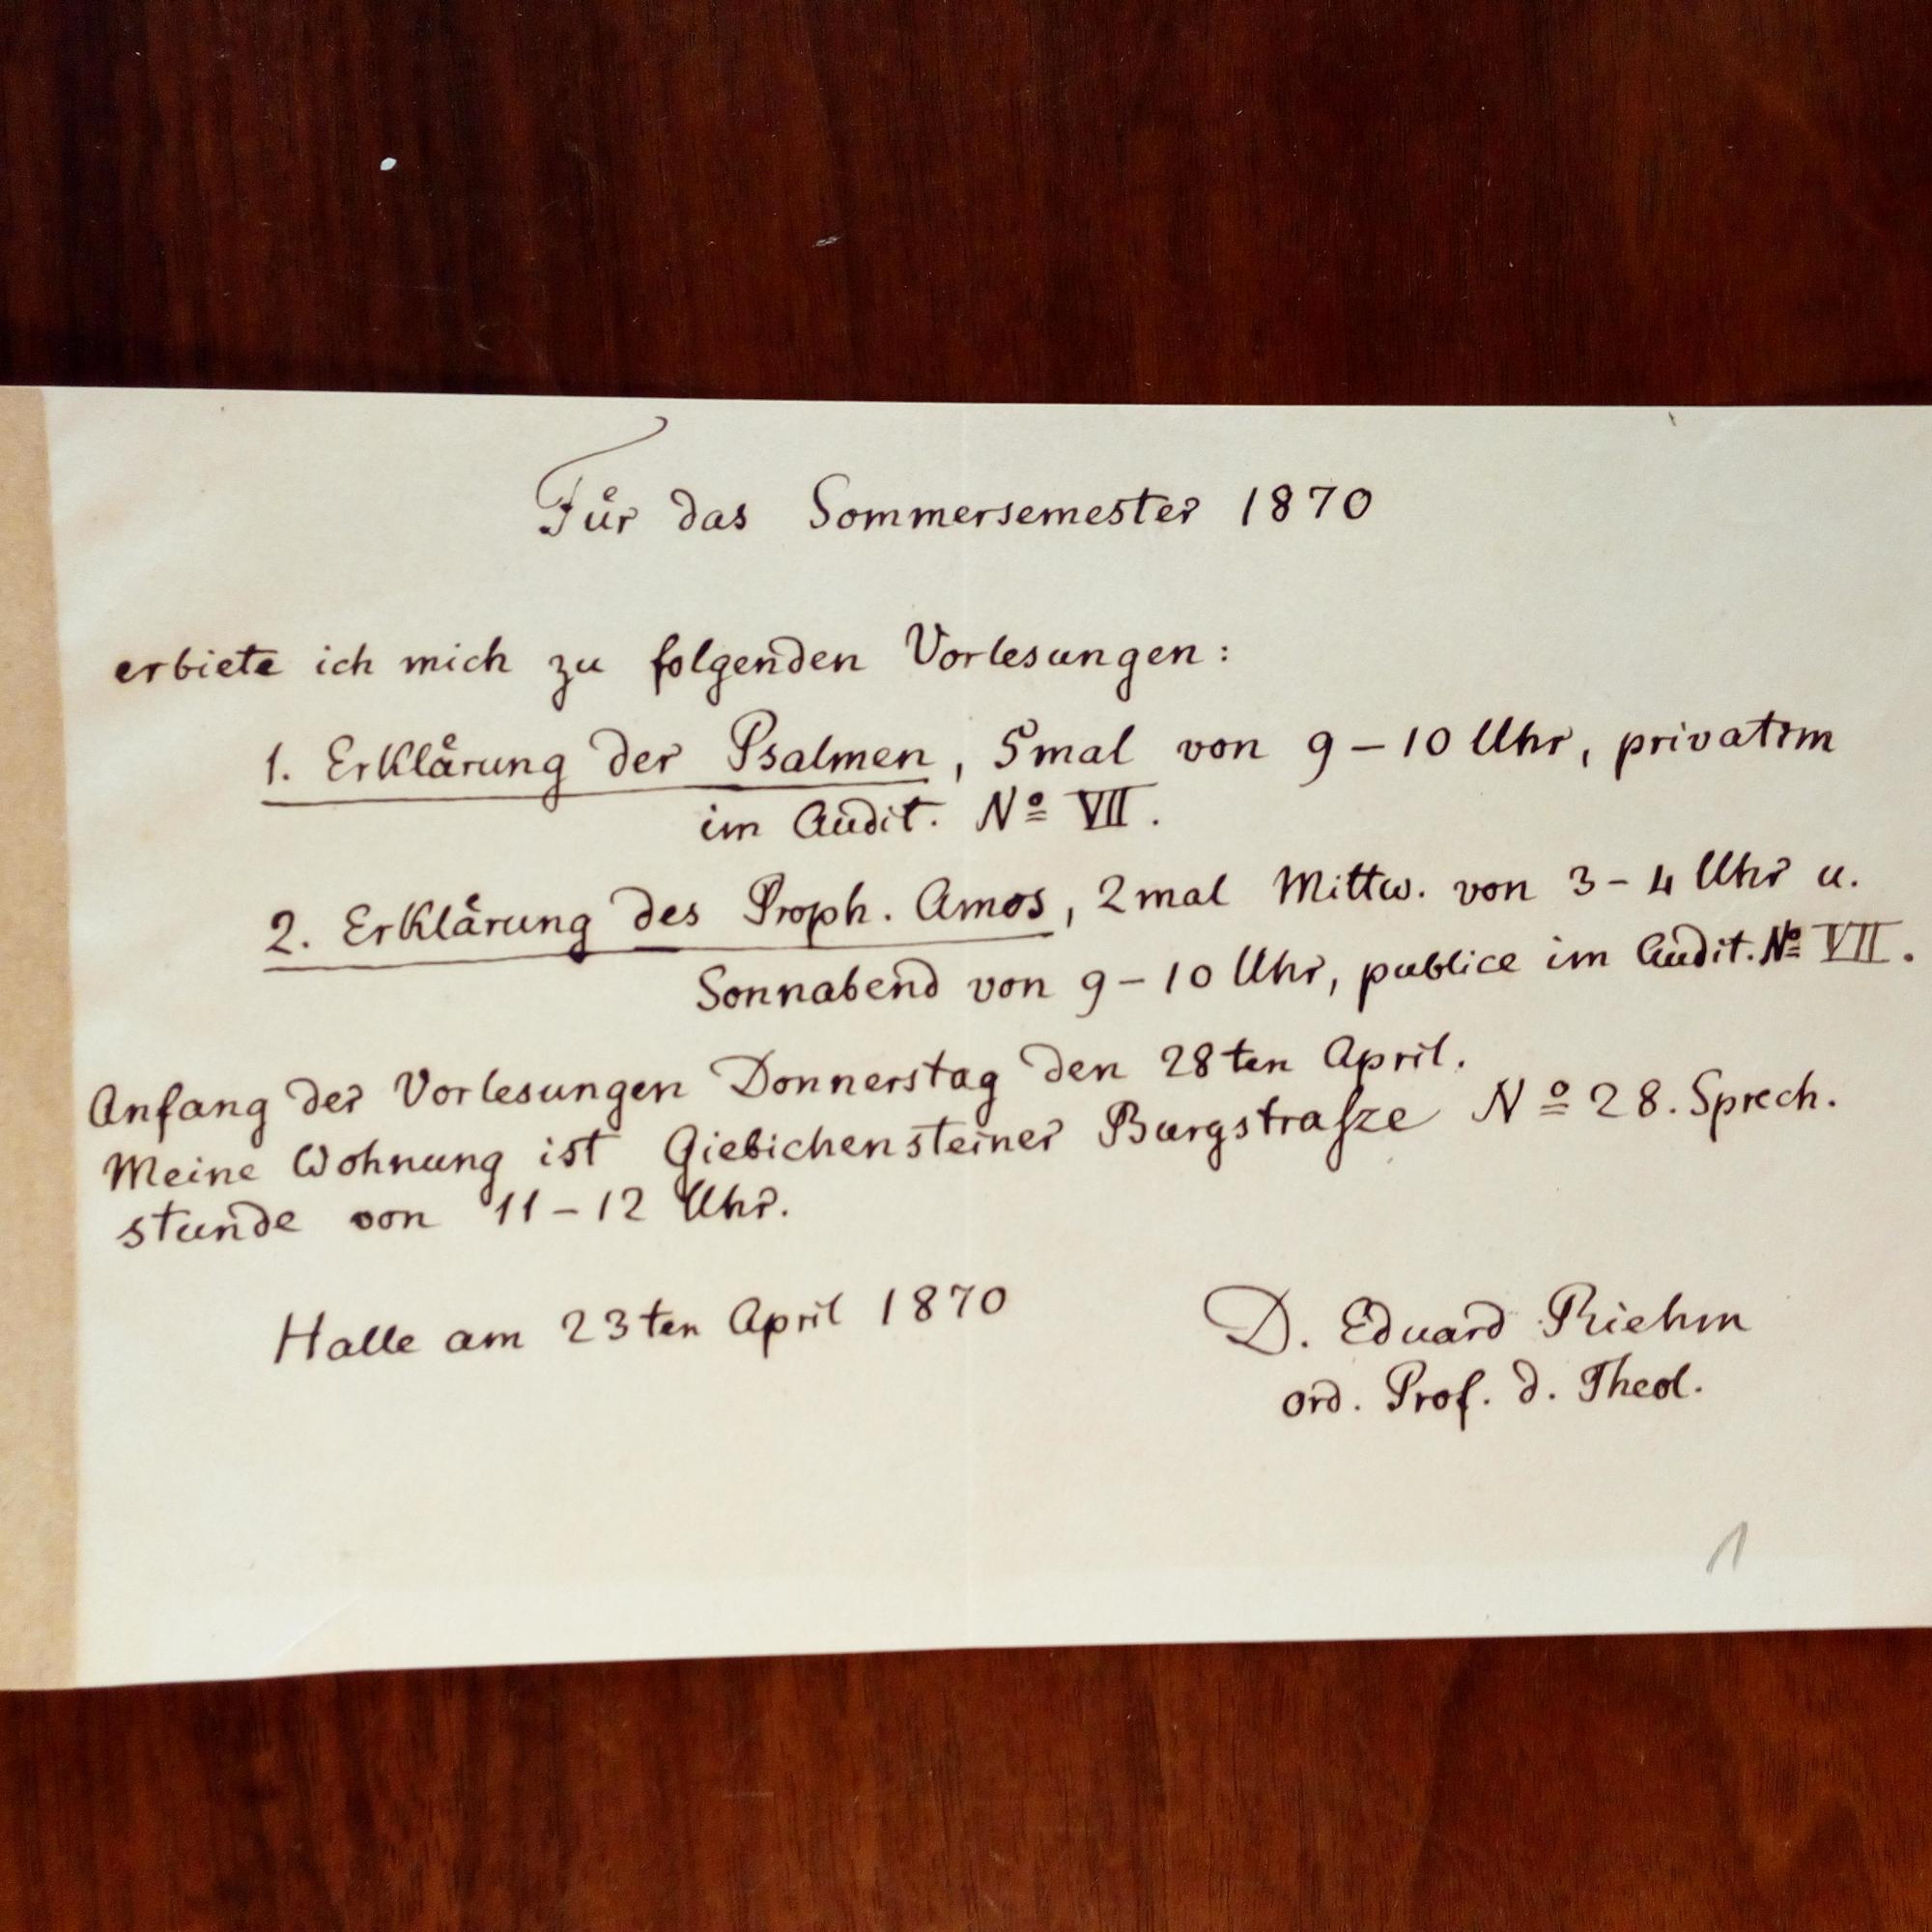 Für das Sommersemester 1870
erbiete ich mich zu folgenden Vorlesungen:
1. Erklärung der Psalmen, 5mal von 9–10 Uhr, privatim
im Audit. Nº VII.
2. Erklärung des Proph. Amos, 2mal Mittw. von 3–4 Uhr u.
Sonnabend von 9–10 Uhr, publice im Audit. Nº VII.
Anfang der Vorlesungen Donnerstag den 28ten April.
Meine Wohnung ist Giebichensteiner Burgstraſze Nº 28. Sprech.
stunde von 11–12 Uhr.
Halle am 23ten April 1870
D. Eduard Riehm
ord. Prof. d. Theol.
1